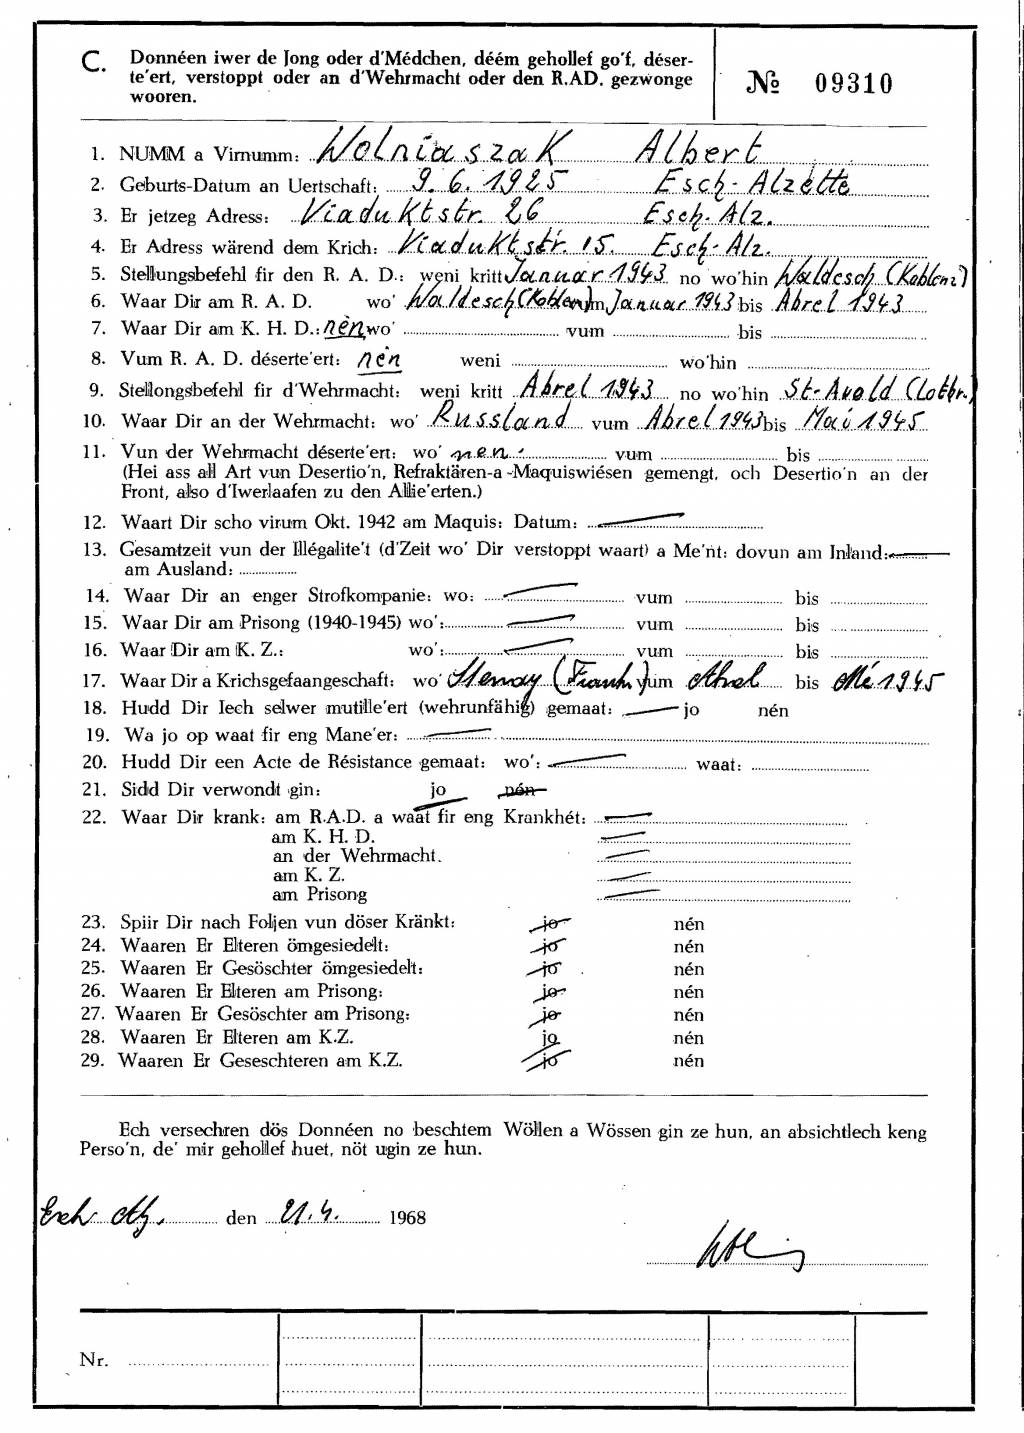 C. Donnéen iwer de Jong oder d'Médchen, déém gehollef go'f, déser-
te'ert, verstoppt oder an d'Wehrmacht oder den R.AD. gezwonge
wooren.
№ 09310
1. NUMM a Virnumm: Wolniaszak Albert
2. Geburts-Datum an Uertschaft: 9.6.1925 Esch-Alzette
3. Er jetzeg Adress: Viaduktstr. 26 Esch-Alz.
4. Er Adress wärend dem Krich: Viaduktstr. 15. Esch-Alz.
5. Stellungsbefehl fir den R. A. D.: weni kritt Januar 1943 no wo'hin Waldesch (Koblenz)
6. Waar Dir am R. A. D. wo' Waldesch (Koblenz) vum Januar 1943 bis Abrel 1943
7. Waar Dir am K. H. D.: nèn wo' vum bis
8. Vum R. A. D. déserte'ert: nèn weni wo'hin
9. Stellongsbefehl fir d'Wehrmacht: weni kritt Abrel 1943 no wo'hin St-Avold (Lothr.)
10. Waar Dir an der Wehrmacht: wo' Russland vum Abrel 1943 bis Mai 1945
11. Vun der Wehrmacht déserte'ert: wo' nen. vum bis
(Hei ass all Art vun Desertio'n, Refraktären-a-Maquiswiésen gemengt, och Desertio'n an der
Front, also d'Iwerlaafen zu den Allie'erten.)
12. Waart Dir scho virum Okt. 1942 am Maquis: Datum:
13. Gesamtzeit vun der Illégalite't (d'Zeit wo' Dir verstoppt waart) a Me'nt: dovun am Inland:
am Ausland:
14. Waar Dir an enger Strofkompanie: wo: vum bis
15. Waar Dir am Prisong (1940-1945) wo': vum bis
16. Waar Dir am K. Z.: wo': vum bis
17. Waar Dir a Krichsgefaangeschaft: wo' Stenay (Frankr) vum bis Mé 1945
18. Hudd Dir Iech selwer mutille'ert (wehrunfähig) gemaat: jo nén
19. Wa jo op waat fir eng Mane'er:
20. Hudd Dir een Acte de Résistance gemaat: wo': waat:
21. Sidd Dir verwondt gin: jo nén
22. Waar Dir krank: am R.A.D. a waat fir eng Krankhét:
am K. H. D.
an der Wehrmacht.
am K. Z.
am Prisong
23. Spiir Dir nach Foljen vun döser Kränkt: jo nén
24. Waaren Er Elteren ömgesiedelt: jo nén
25. Waaren Er Gesöschter ömgesiedelt: jo nén
26. Waaren Er Elteren am Prisong: jo nén
27. Waaren Er Gesöschter am Prisong: jo nén
28. Waaren Er Elteren am K.Z. jo nén
29. Waaren Er Geseschteren am K.Z. jo nén
Ech versechren dös Donnéen no beschtem Wöllen a Wössen gin ze hun, an absichtlech keng
Perso'n, de' mir gehollef huet, nöt ugin ze hun.
Esch-Alz. den 21.4. 1968
Nr.